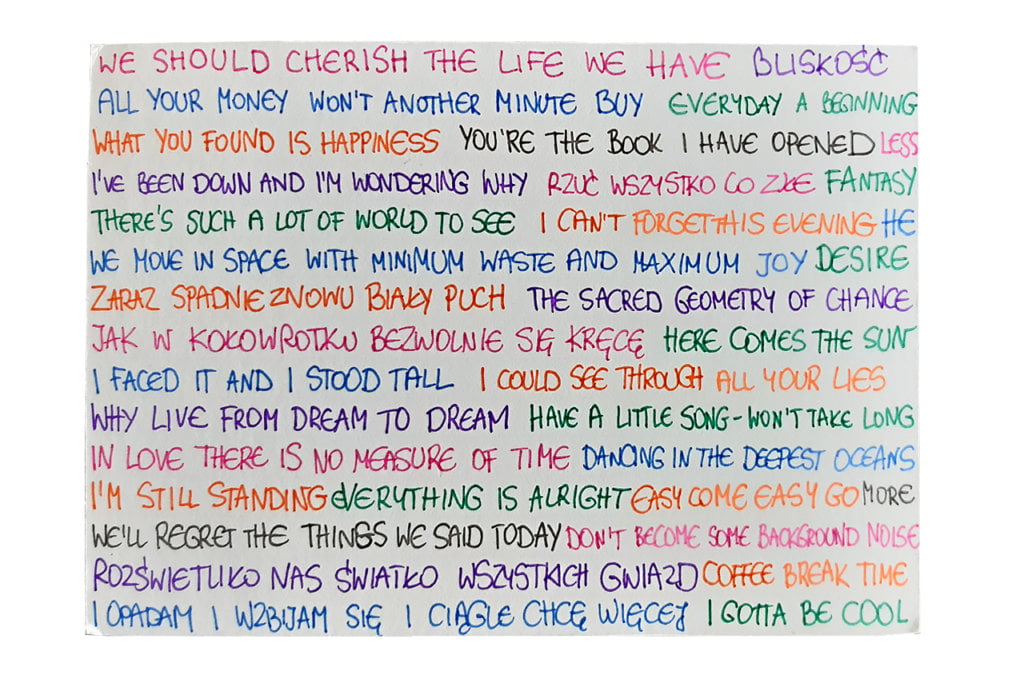 WE SHOULD CHERISH THE LIFE WE HAVE BLISKOŚĆ
ALL YOUR MONEY WON'T ANOTHER MINUTE BUY EVERYDAY A BEGINNING
WHAT YOU FOUND IS HAPPINESS YOU'RE THE BOOK I HAVE OPENED LESS
I'VE BEEN DOWN AND I'M WONDERING WHY RZUĆ WSZYSTKO CO ZŁE FANTASY
THERE'S SUCH A LOT OF WORLD TO SEE I CAN'T FORGET THIS EVENING HE
WE MOVE IN SPACE WITH MINIMUM WASTE AND MAXIMUM JOY DESIRE
ZARAZ SPADNIE ZNOWU BIAŁY PUCH THE SACRED GEOMETRY OF CHANCE
JAK W KOŁOWROTKU BEZWOLNIE SIĘ KRĘCĘ HERE COMES THE SUN
I FACED IT AND I STOOD TALL I COULD SEE THROUGH ALL YOUR LIES
WHY LIVE FROM DREAM TO DREAM HAVE A LITTLE SONG - WON'T TAKE LONG
IN LOVE THERE IS NO MEASURE OF TIME DANCING IN THE DEEPEST OCEANS
I'M STILL STANDING EVERYTHING IS ALRIGHT EASY COME EASY GO MORE
WE'LL REGRET THE THINGS WE SAID TODAY DON'T BECOME SOME BACKGROUND NOISE
ROZŚWIETLIŁO NAS ŚWIATŁO WSZYSTKICH GWIAZD COFFEE BREAK TIME
I OPADAM I WZBIJAM SIĘ I CIĄGLE CHCĘ WIĘCEJ I GOTTA BE COOL